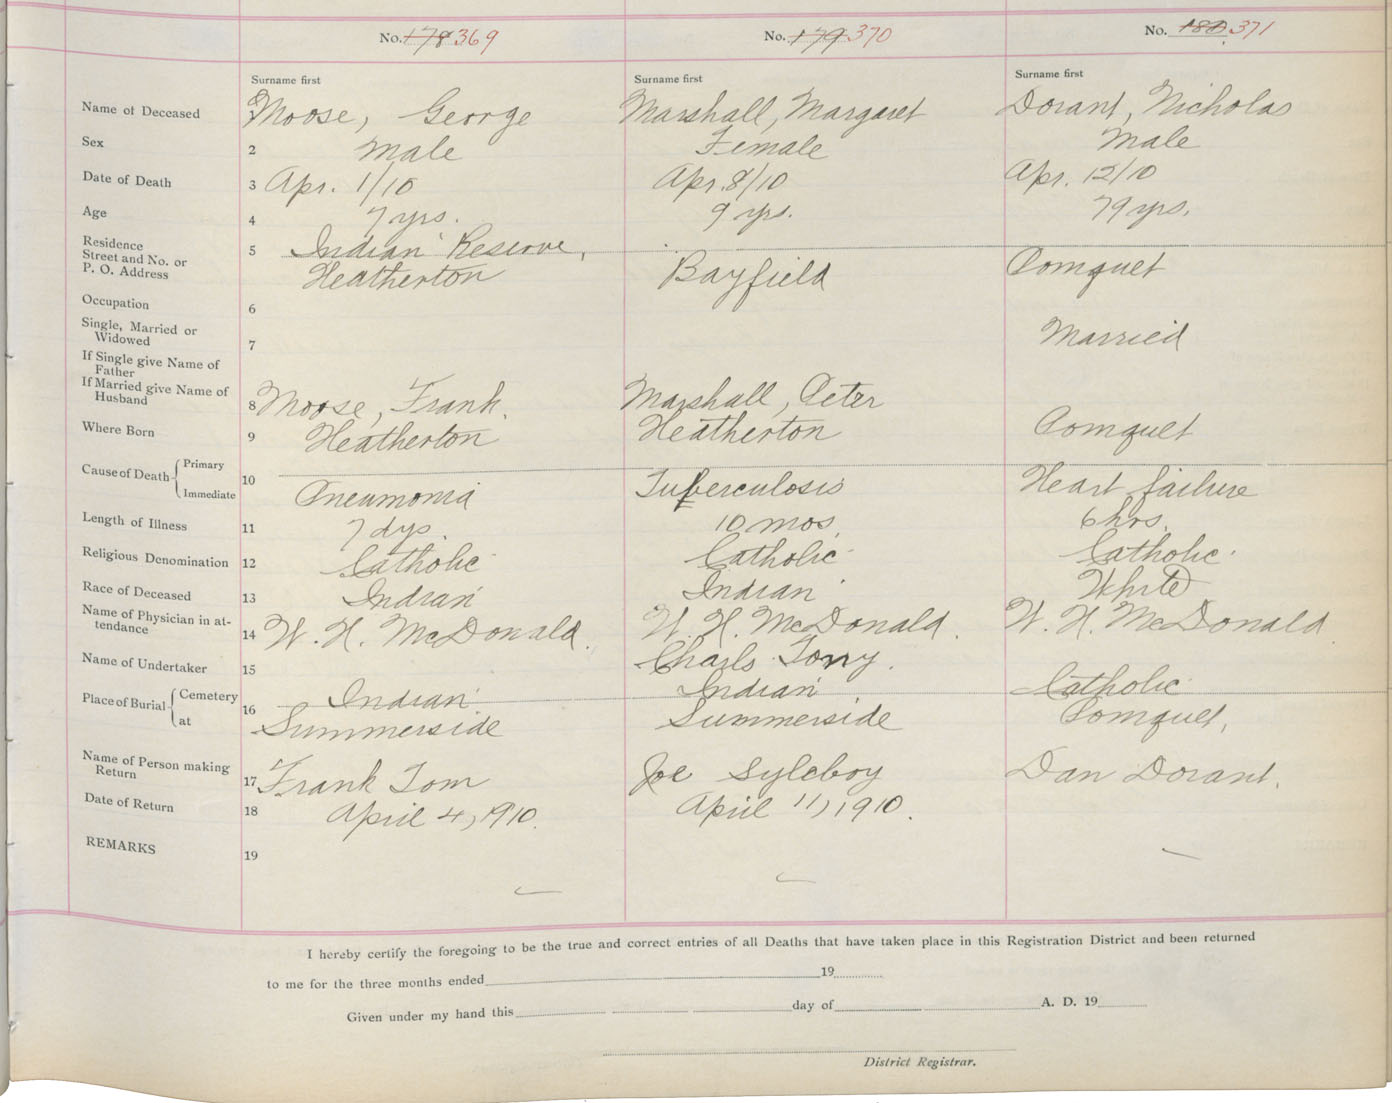 No. 178 369 No. 179 370 No. 180 371
Surname first Surname first Surname first
Name of Deceased 1 Moose, George Marshall, Margaret Dorant, Nicholas
Sex 2 Male Female Male
Date of Death 3 Apr. 1/10 Apr. 8/10 Apr. 12/10
Age 4 7 yrs. 9 yrs. 79 yrs.
Residence 5 Indian Reserve,
Street and No. or
P. O. Address Heatherton Bayfield Pomquet
Occupation 6
Single, Married or
Widowed 7 Married
If Single give Name of
Father
If Married give Name of
Husband 8 Moose, Frank. Marshall, Peter
Where Born 9 Heatherton Heatherton Pomquet
Cause of Death Primary
Immediate 10 Pneumonia Tuberculosis Heart failure
Length of Illness 11 7 dys. 10 mos 6 hrs.
Religious Denomination 12 Catholic Catholic Catholic
Race of Deceased 13 Indian Indian White
Name of Physician in at-
tendance 14 W. H. McDonald. W. H. McDonald. W. H. McDonald
Name of Undertaker 15 Charls Tony.
Place of Burial Cemetery 16 Indian Indian Catholic
at Summerside Summerside Pomquet,
Name of Person making
Return 17 Frank Tom Joe Syleboy Dan Dorant.
Date of Return 18 April 4, 1910. April 11, 1910.
REMARKS 19
I hereby certify the foregoing to be the true and correct entries of all Deaths that have taken place in this Registration District and been returned
to me for the three months ended 19
Given under my hand this day of A. D. 19
District Registrar.